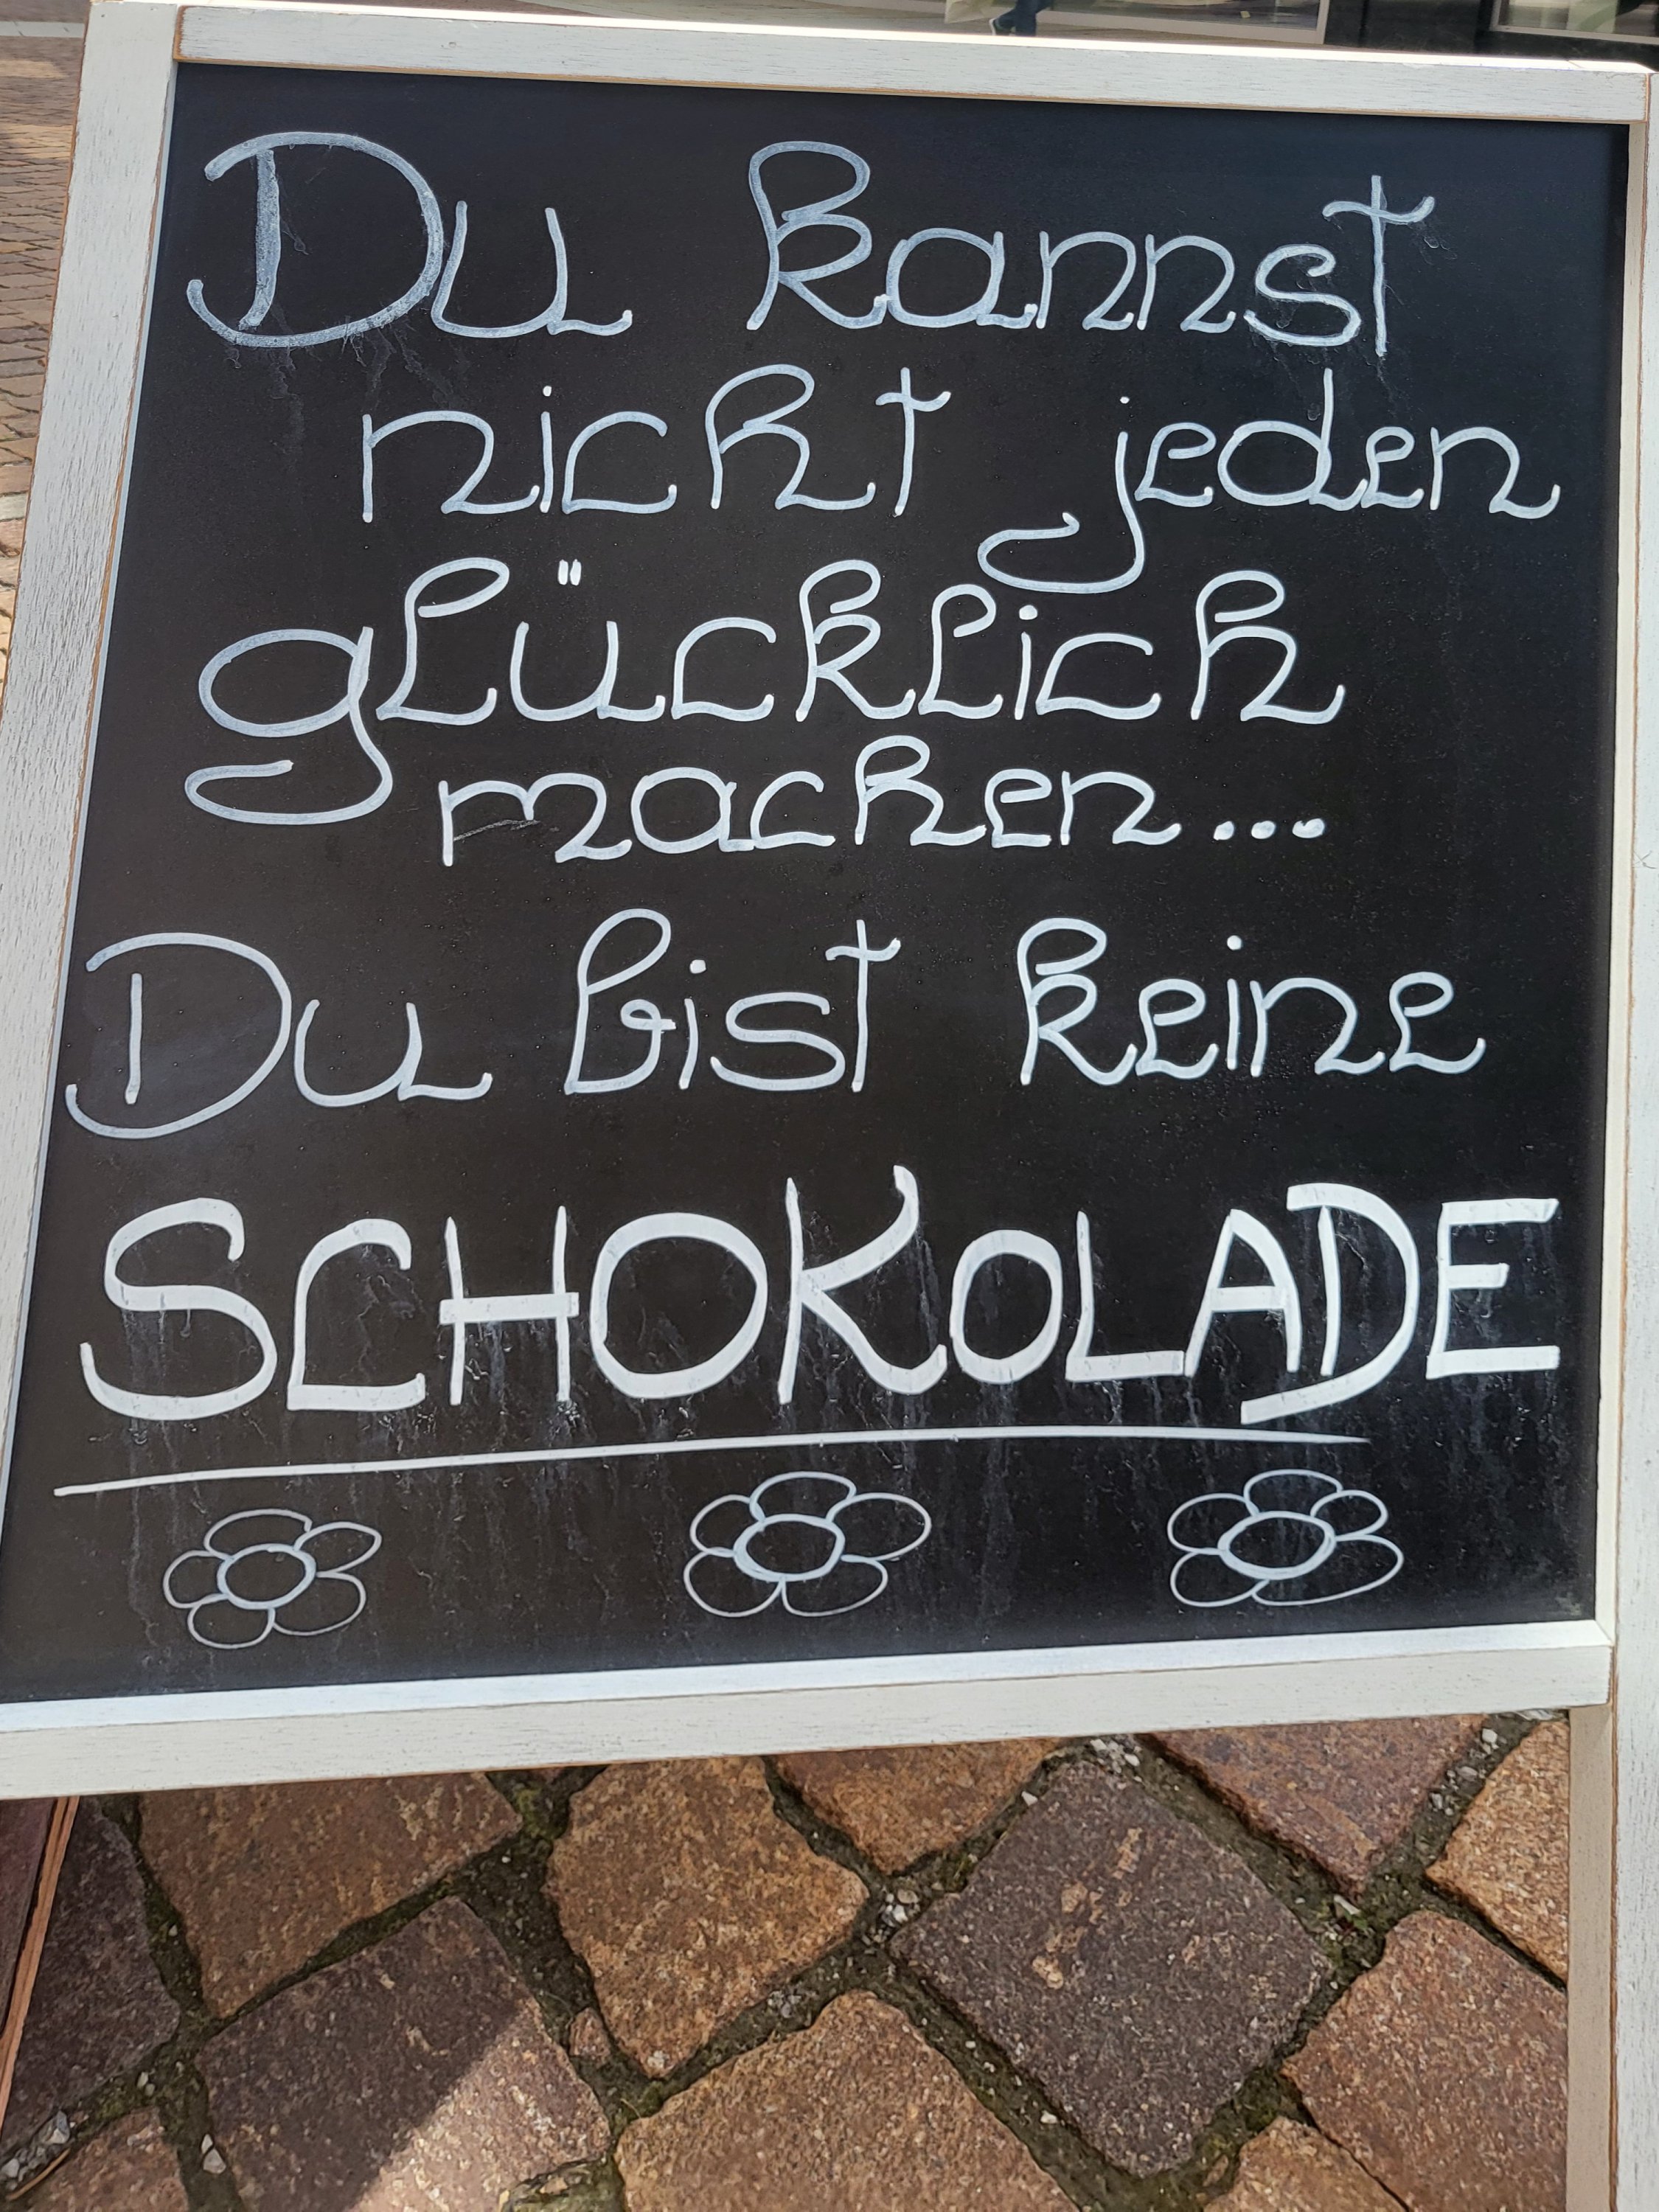 Du kannst
nicht jeden
glücklich
machen...
Du bist keine
SCHOKOLADE